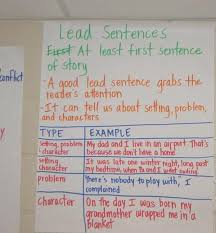 Lead Sentences
First At least first sentence
of story
- A good lead sentence grabs the
reader's attention
- It can tell us about setting, problem,
and characters
conflict
TYPE EXAMPLE
setting, problem, character My dad and I live in an airport. That's
because we don't have a home
setting, character It was late one winter night, long past
my bedtime, when Pa and I went owling
problem There's nobody to play with, I
complained
character On the day I was born my
grandmother wrapped me in a
blanket